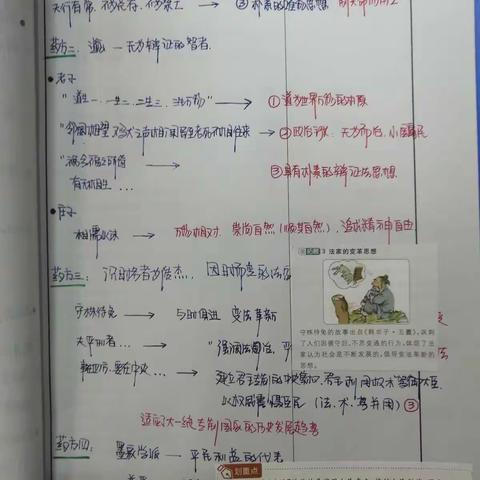 天行有常，不为尧存，不为桀亡 → ③朴素的唯物思想
药方二、道 — 无为辩证的智者
• 老子
"道生一，一生二，二生三，三生万物" → ①道为世界万物的本原
"邻国相望，鸡犬之声相闻，民至老死不相往来 → ②政治主张：无为而治，小国寡民
"祸兮福之所倚 → ③具有朴素的辩证法思想
有无相生 …
• 庄子
→ 万物相对，崇尚自然（顺其自然），追求精神自由
药方三：识时务者为俊杰，因时而变
守株待兔 → 与时俱进 变法革新
太平则者… → "强调法国治，
事在四方，要在中央… → 建立君主专制的中央集权，君主利用权术驾驭大臣
以权威震慑臣民（法、术、势并用）③
适应大一统专制国家的历史发展趋势
药方四：墨家学派 — 平民利益的代表
3 法家的变革思想
守株待兔的故事出点《韩非子·五蠹》，讽刺
了人们因循守旧、不思变通的行为，体现了法
家认为社会是不断发展的，倡导变法革新的
思想。
法
划重点